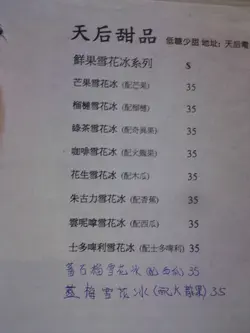 天后甜品 低糖少甜 地址: 天后電
鮮果雪花冰系列 $
芒果雪花冰 (配芒果) 35
榴槤雪花冰 (配榴槤) 35
綠茶雪花冰 (配奇異果) 35
咖啡雪花冰 (配火龍果) 35
花生雪花冰 (配木瓜) 35
朱古力雪花冰 (配香蕉) 35
雲呢嗱雪花冰 (配西瓜) 35
士多啤利雪花冰 (配士多啤利) 35
蕃石榴雪花冰 (配西瓜) 35
藍梅雪花冰 (配火龍果) 35